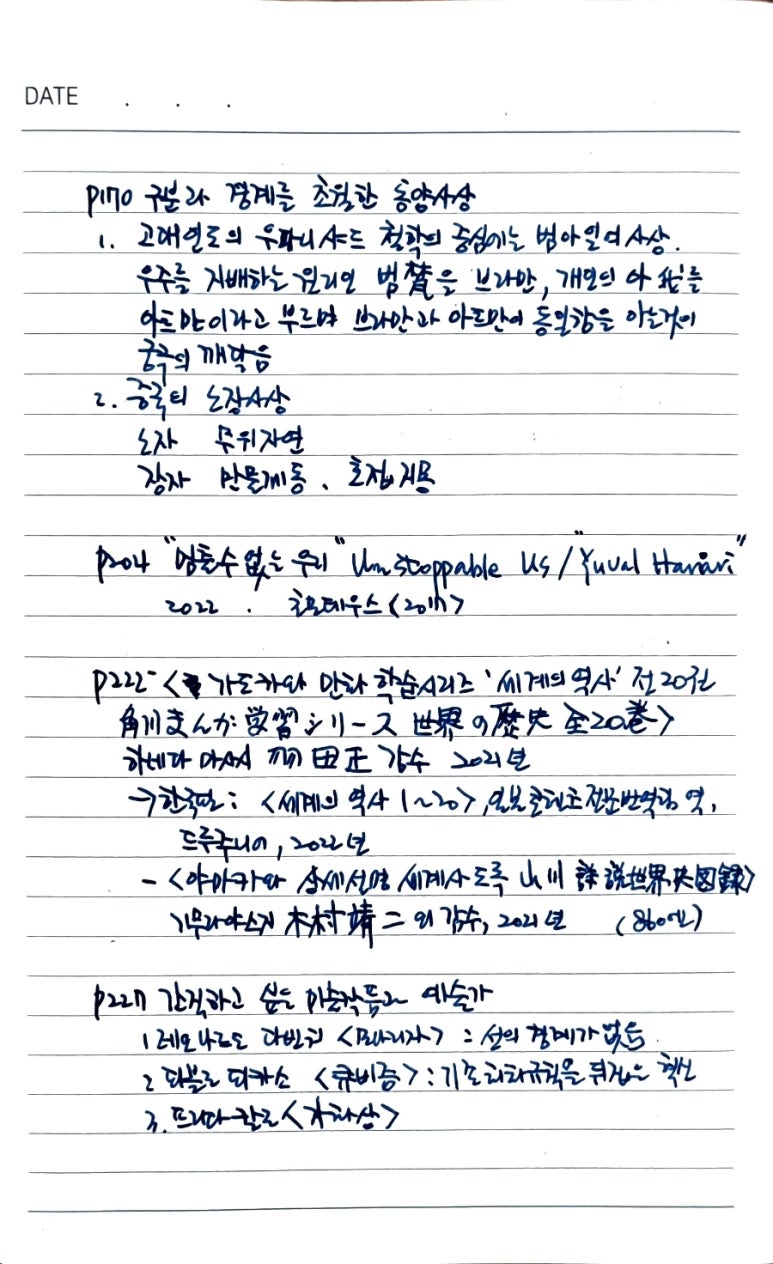 DATE . . .
p170 구분과 경계를 초월한 동양사상
1. 고대인도의 우파니샤드 철학의 중심에는 범아일여사상.
우주를 지배하는 원리인 범 을 브라만, 개인의 아 를
아트만이라고 부르며 브라만과 아트만이 동일함을 아는것이
궁극의 깨달음
2. 중국의 노장사상
노자 무위자연
장자 만물제동 . 호접지몽
p204 "멈출수 없는 우리" Unstoppable Us / "Yuval Harari"
2022 . 호모데우스 <2017>
p222 < 가도카와 만화 학습시리즈 '세계의 역사' 전20권
角川まんが学習シリース 世界の歴史 全20巻>
하네다 마사시 羽田正 감수 2021년
→한국판: <세계의 역사 1~20>, 일본콘텐츠전문번역팀 역,
드루주니어, 2022년
- <야마카와 상세설명 세계사도록 山川 詳説世界史図録>
기무라야스지 木村靖二 외 감수, 2021년 (860엔)
p227 간직하고 싶은 미술작품과 예술가
1 레오나르도 다빈치 <모나리자> : 선의 경계가 없음.
2 파블로 피카소 <큐비즘> : 기존회화규칙을 뒤집은 혁신
3. 프리다 칼로 <자화상>